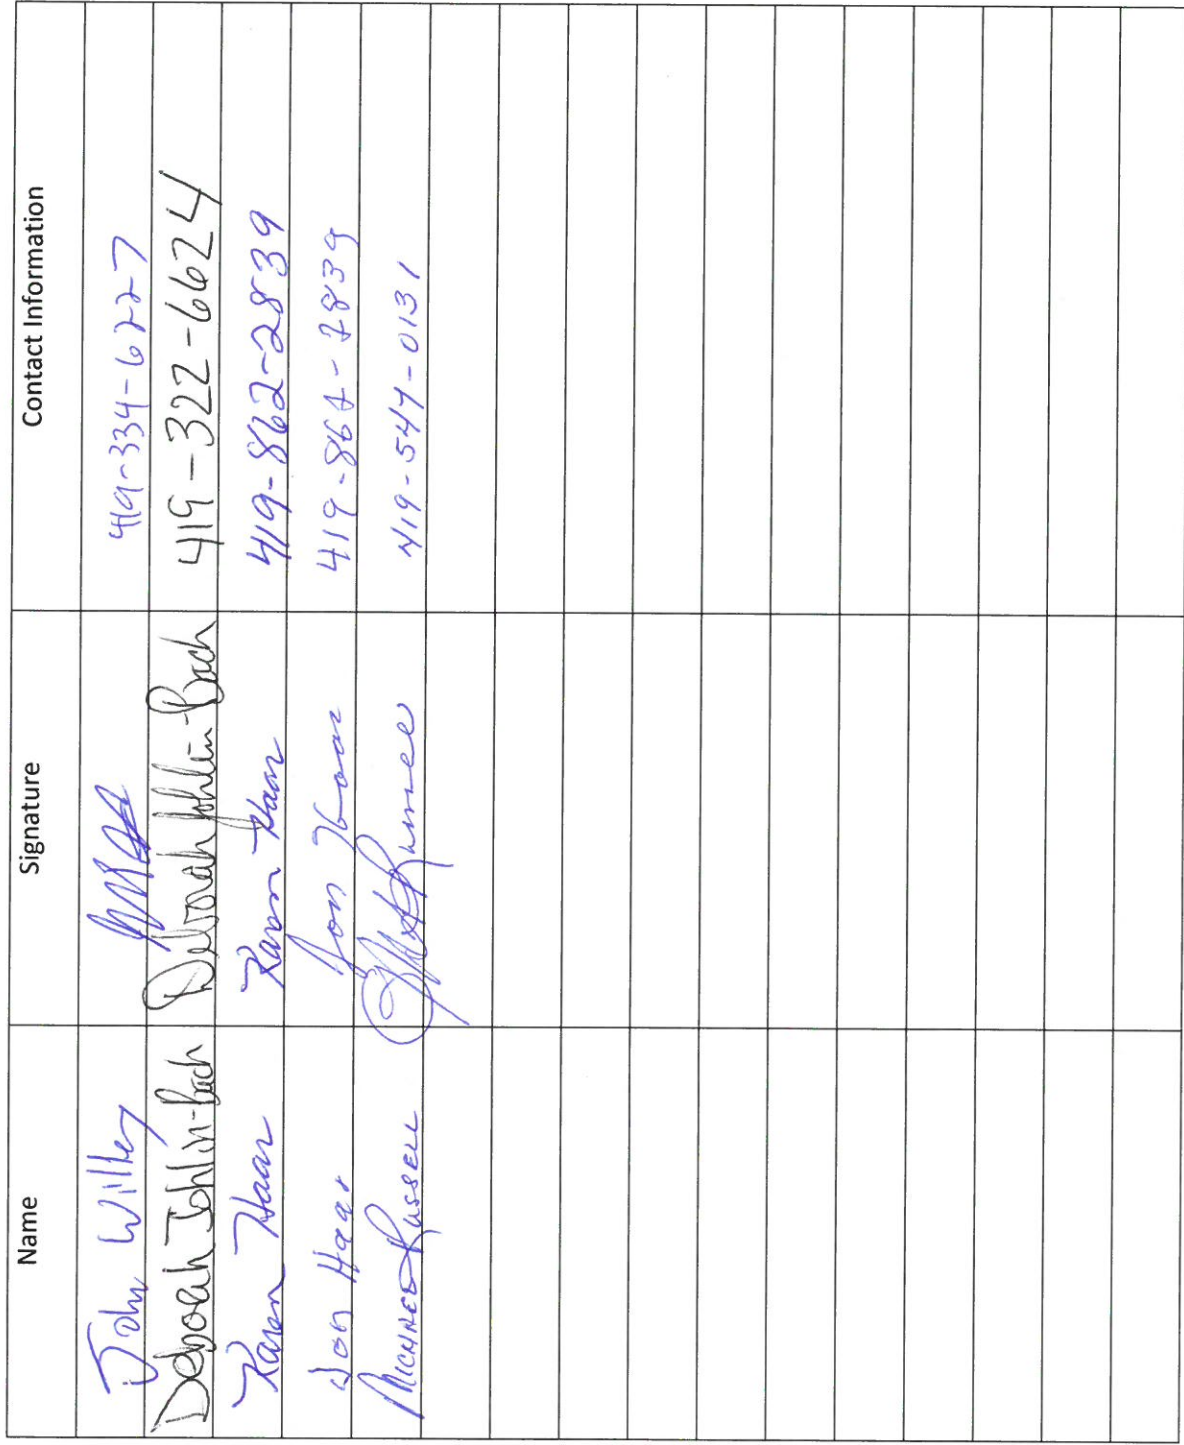 Name Signature Contact Information
John Willey 419-334-6227
Deborah Johlin-Bach Deborah Johlin-Bach 419-322-6624
Karen Haar Karen Haar 419-862-2839
Jon Haar Jon Haar 419-862-2839
Michael Russell 419-547-0131